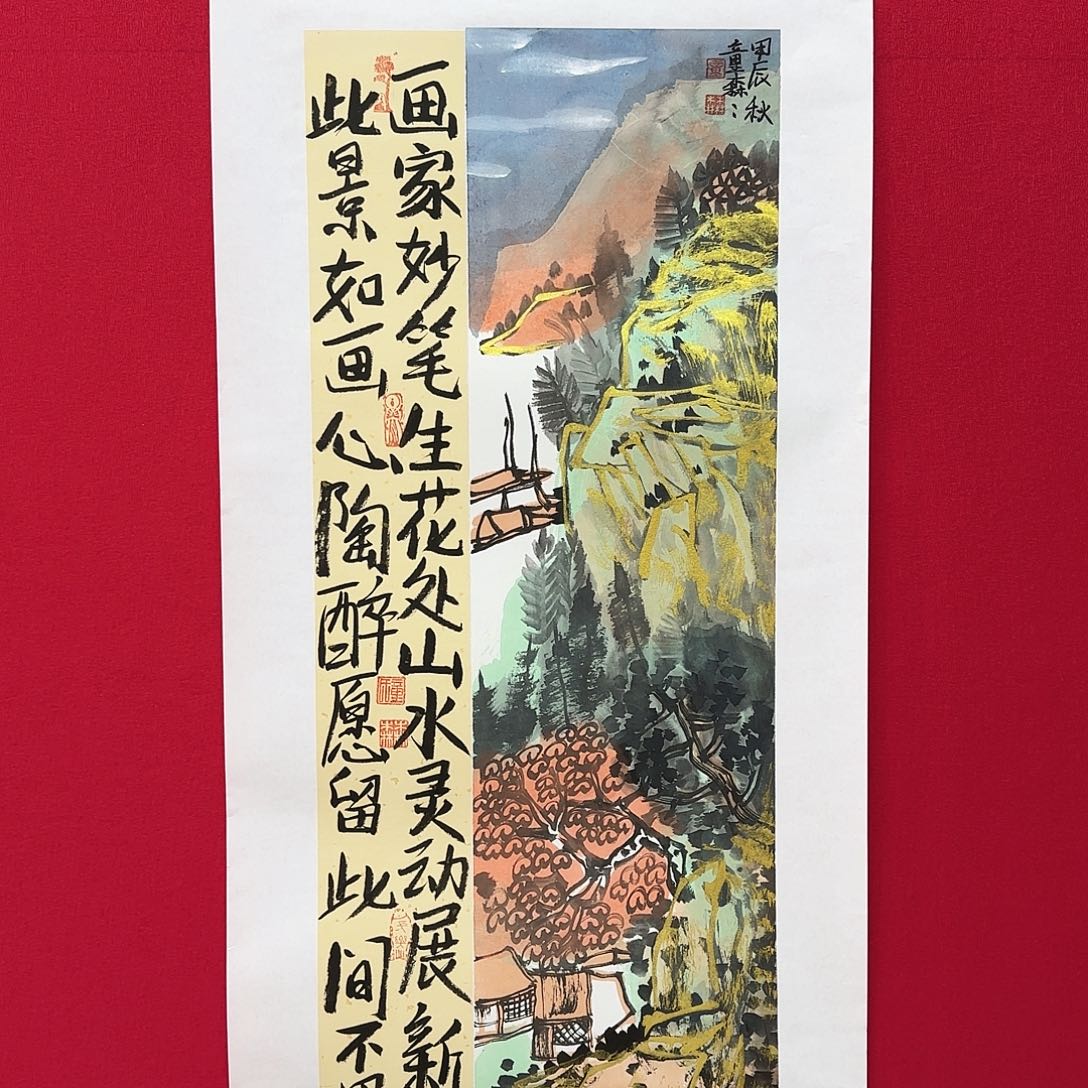 甲辰秋
童森
画家妙笔生花处山水灵动展新
此景如画心陶醉愿留此间不